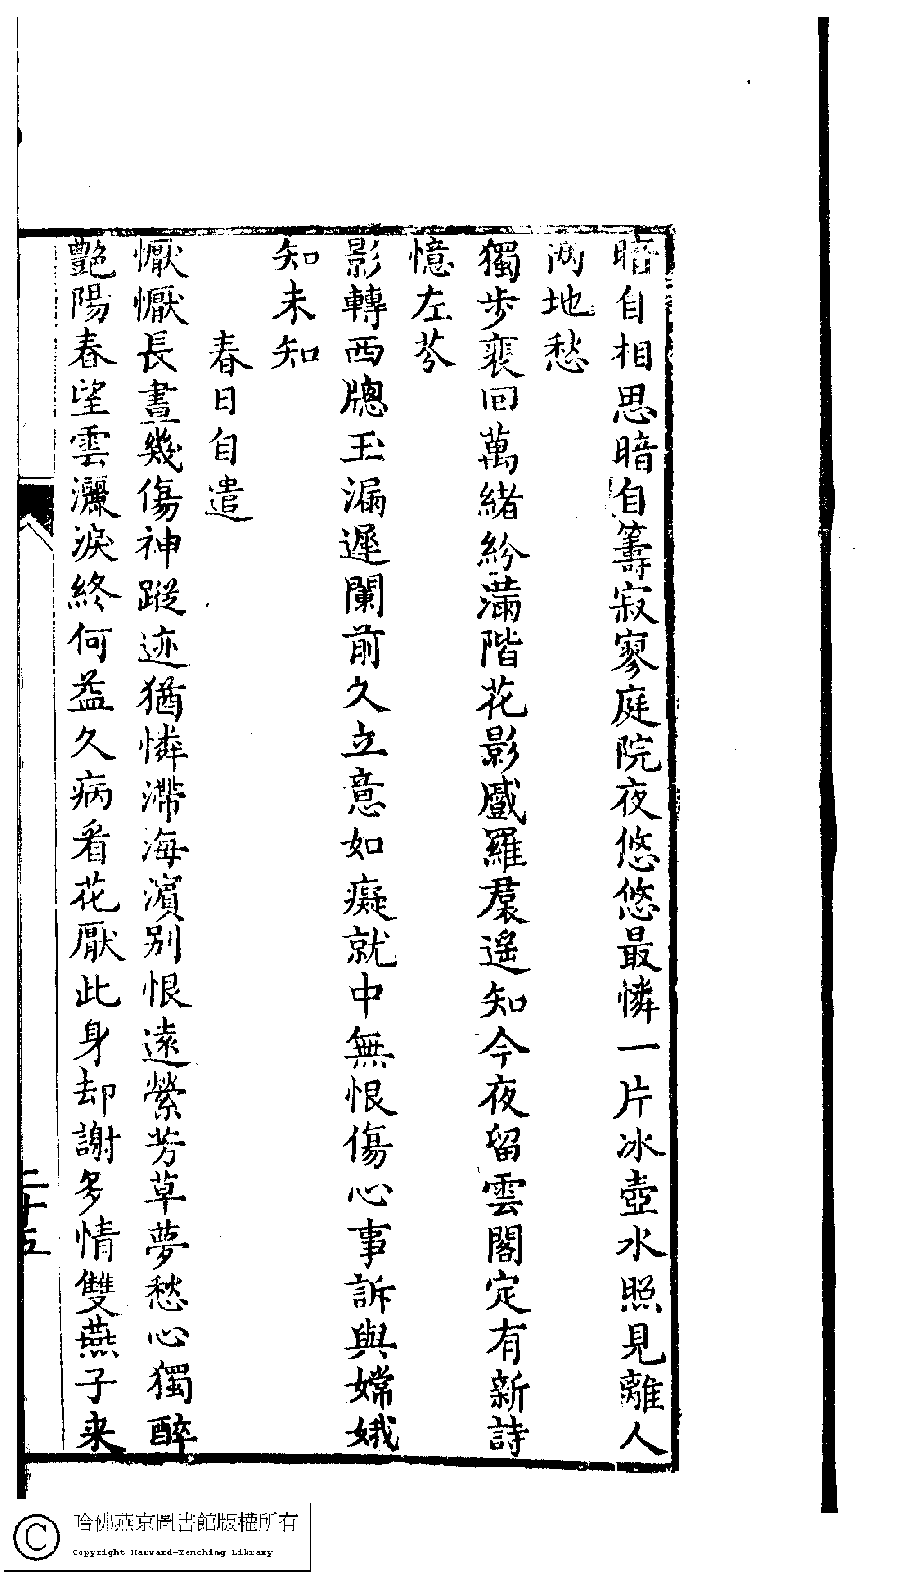 暗自相思暗自籌寂寥庭院夜悠悠最憐一片冰壺水照見離人
兩地愁
獨步裴回萬緒紛滿階花影蹙羅裠遙知今夜留雲閣定有新詩
憶左芬
影轉西牕玉漏遲闌前久立意如癡就中無恨傷心事訴與嫦娥
知未知
春日自遣
懨懨長晝幾傷神蹤迹猶憐滯海濵别恨遠縈芳草夢愁心獨醉
艷陽春望雲灑淚終何益久病看花厭此身却謝多情雙燕子来
二十五
哈佛燕京圖書館版權所有
Copyright Harvard-Yenching Library